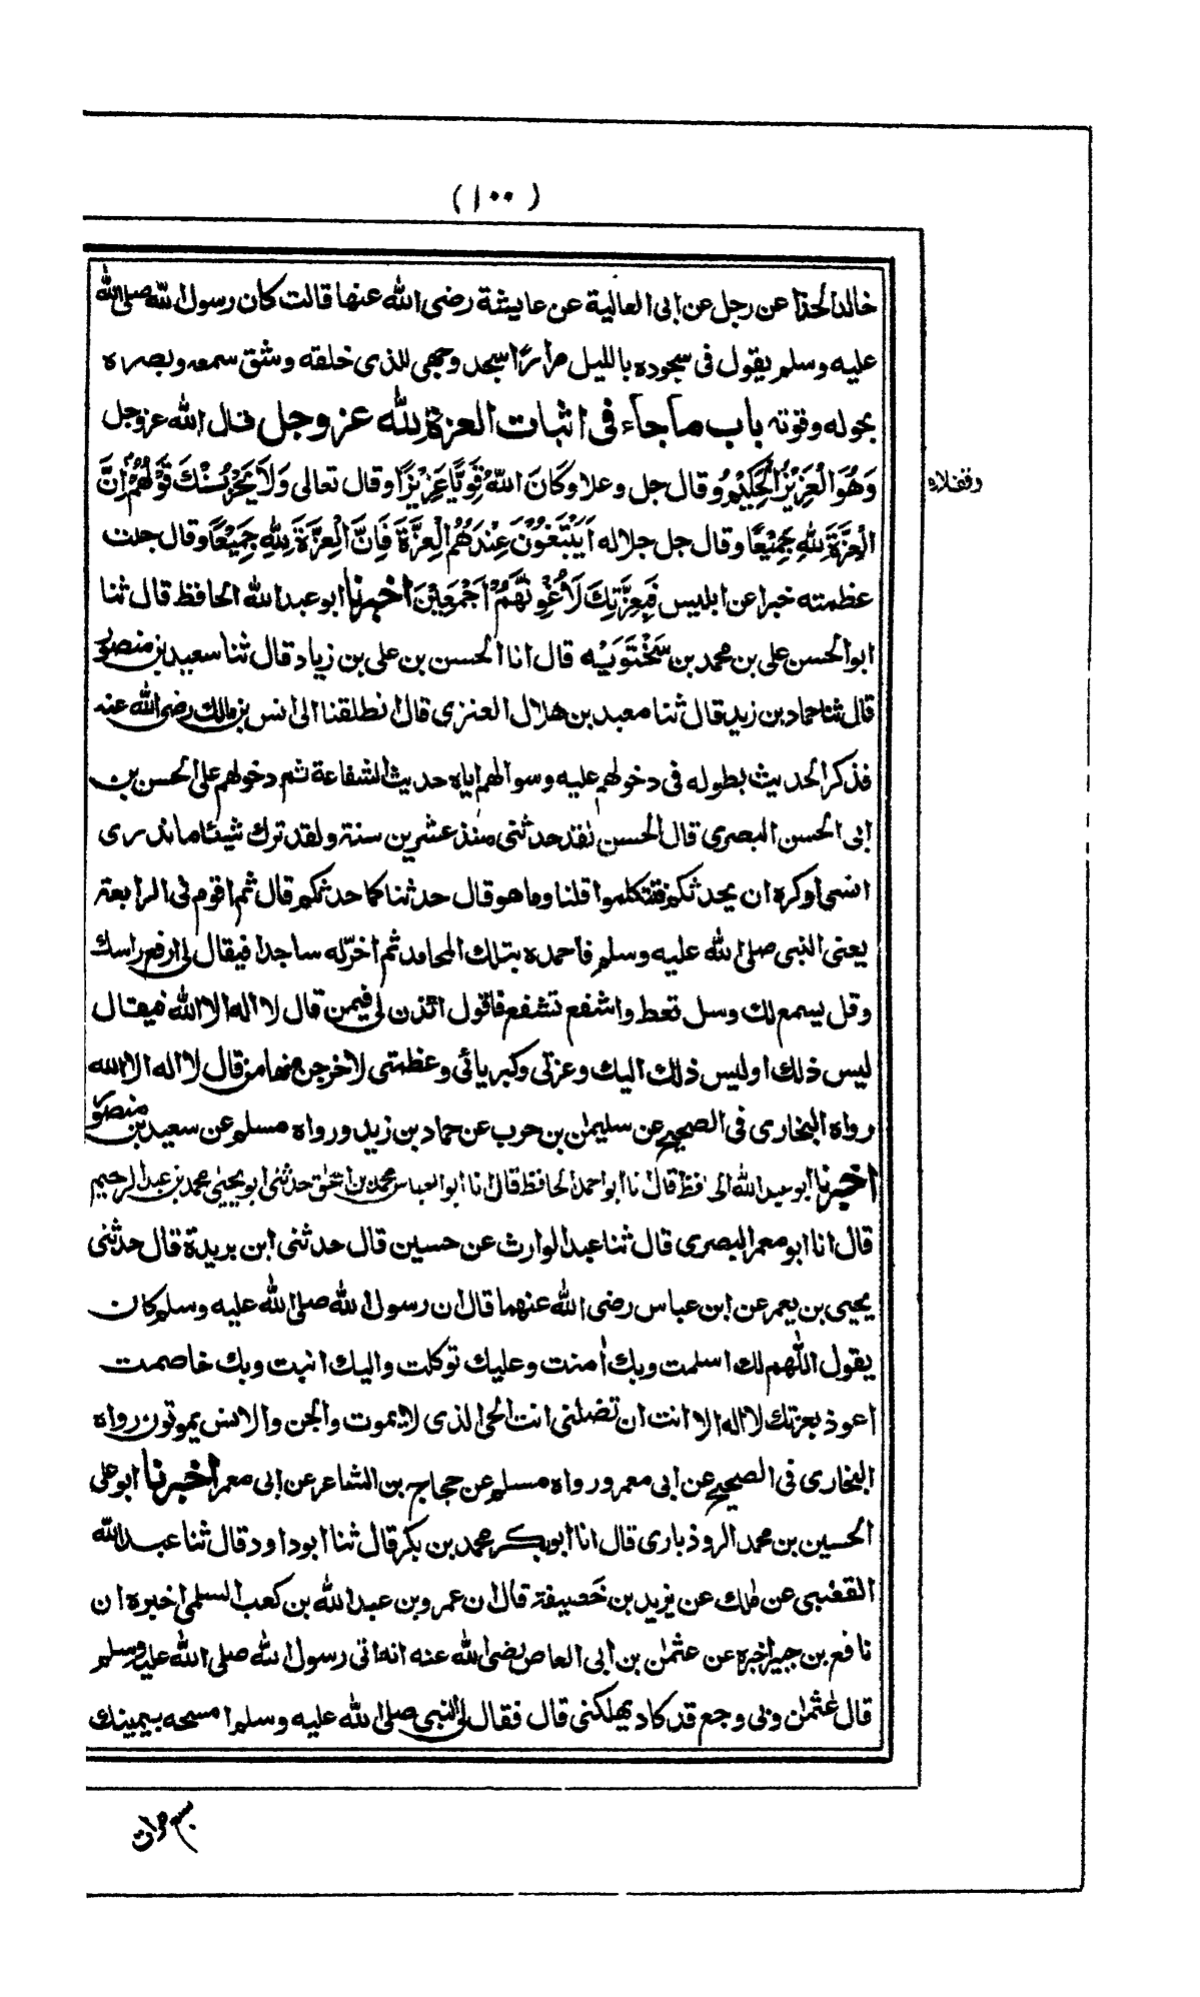 (١٠٠)
خالد الحذا عن رجل عن ابى العالية عن عايشة رضى الله عنها قالت كان رسول الله صلى الله
عليه وسلم يقول فى سجوده بالليل مرارًا سجد وجهى للذى خلقه وشق سمعه وبصره
بحوله وقوته باب ما جآء فى اثبات العزة لله عز وجل قال الله عز وجل
وَهُوَ الْعَزِيْزُ الْحَكِيْمُ وقال جل وعلا وَكَانَ اللهُ قَوِيًّا عَزِيْزًا وقال تعالى وَلَا يَحْزُنْكَ قَوْلُهُمْ اِنَّ
وقف لازم
الْعِزَّةَ لِلّٰهِ جَمِيْعًا وقال جل جلاله اَيَبْتَغُوْنَ عِنْدَهُمُ الْعِزَّةَ فَاِنَّ الْعِزَّةَ لِلّٰهِ جَمِيْعًا وقال جلت
عظمته خبرا عن ابليس فَبِعِزَّتِكَ لَاُغْوِيَنَّهُمْ اَجْمَعِيْنَ اخبرنا ابو عبد الله الحافظ قال ثنا
ابو الحسن على بن محمد بن سَخْتَوَيْه قال انا الحسن بن على بن زياد قال ثنا سعيد بن منصور
قال ثنا حماد بن زيد قال ثنا معبد بن هلال العنزى قال انطلقنا الى انس بن مالك رضى الله عنه
فذكر الحديث بطوله فى دخولهم عليه وسوالهم اياه حديث الشفاعة ثم دخولهم على الحسن بن
ابى الحسن البصرى قال الحسن لقد حدثنى منذ عشرين سنة ولقد ترك شيئا ما ندرى
انسى اوكره ان يحدثكم فتتكلموا قلنا وما هو قال حدثنا كما حدثكم قال ثم اقوم فى الرابعة
يعنى النبى صلى الله عليه وسلم فاحمده بتلك المحامد ثم اخرّ له ساجدا فيقال لى ارفع راسك
وقل يسمع لك وسل تعط واشفع تشفع فاقول ائذن لى فيمن قال لا اله الا الله فيقال
ليس ذلك او ليس ذلك اليك وعزتى وكبريائى وعظمتى لاخرجن منها من قال لا اله الا الله
رواه البخارى فى الصحيح عن سليمٰن بن حرب عن حماد بن زيد ورواه مسلم عن سعيد بن منصور
اخبرنا ابو عبد الله الحافظ قال نا ابو احمد الحافظ قال انا ابو العباس محمد بن اسحٰق حدثنى ابو يحيٰى محمد بن عبد الرحيم
قال انا ابو معمر البصرى قال ثنا عبد الوارث عن حسين قال حدثنى ابن بريدة قال حدثنى
يحيى بن يعمر عن ابن عباس رضى الله عنهما قال ان رسول الله صلى الله عليه وسلم كان
يقول اللّٰهم لك اسلمت وبك اٰمنت وعليك توكلت واليك انبت وبك خاصمت
اعوذ بعزتك لا اله الا انت ان تضلنى انت الحى الذى لا يموت والجن والانس يموتون رواه
البخارى فى الصحيح عن ابى معمر ورواه مسلم عن حجاج بن الشاعر عن ابى معمر اخبرنا ابو على
الحسين بن محمد الروذبارى قال انا ابو بكر محمد بن بكر قال ثنا ابو داود قال ثنا عبد الله
القعنبى عن مٰلك عن يزيد بن خَصيفة قال ان عمرو بن عبد الله بن كعب السلمى اخبره ان
نافع بن جبير اخبره عن عثمٰن بن ابى العاص رضى الله عنه انه اتى رسول الله صلى الله عليه وسلم
قال عثمٰن وبى وجع قد كاد يهلكنى قال فقال لى النبى صلى الله عليه وسلم امسحه بيمينك
سبع مرات